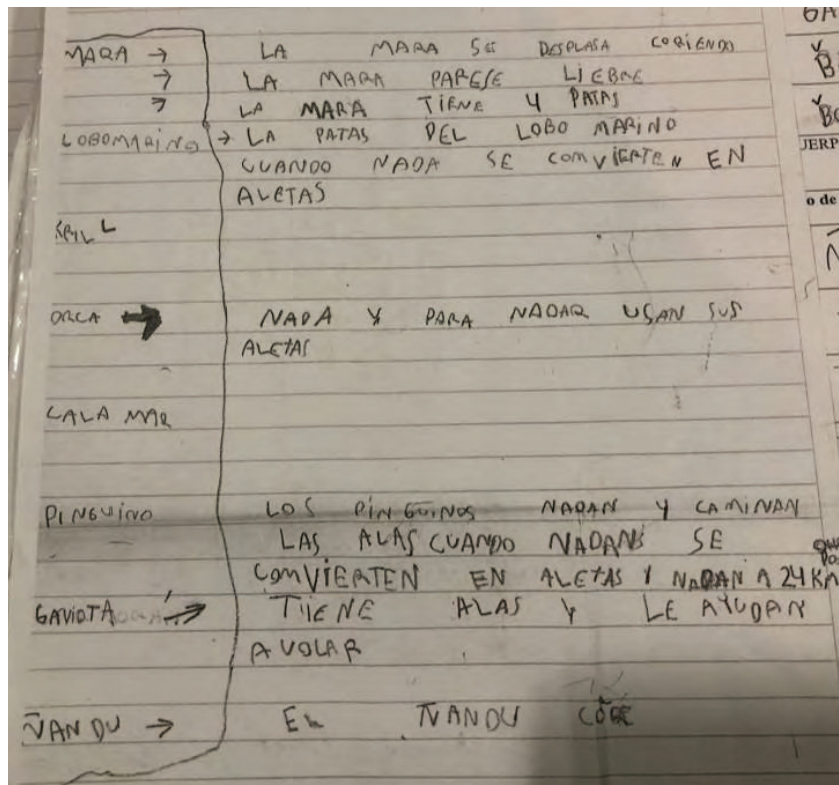 MARA → LA MARA SE DESPLASA CORIENDO
→ LA MARA PARESE LIEBRE
→ LA MARA TIENE 4 PATAS
LOBOMARINO → LA PATAS DEL LOBO MARINO
CUANDO NADA SE COMVIERTEN EN
ALETAS
KRILL
ORCA → NADA Y PARA NADAR USAN SUS
ALETAS
CALA MAR
PINGUINO LOS PINGÜINOS NADAN Y CAMINAN
LAS ALAS CUANDO NADAN SE
COMVIERTEN EN ALETAS Y NADAN A 24 KM
GAVIOTA → TIENE ALAS Y LE AYUDAN
A VOLAR
ÑANDU → EL ÑANDU CORE
UERP
o de